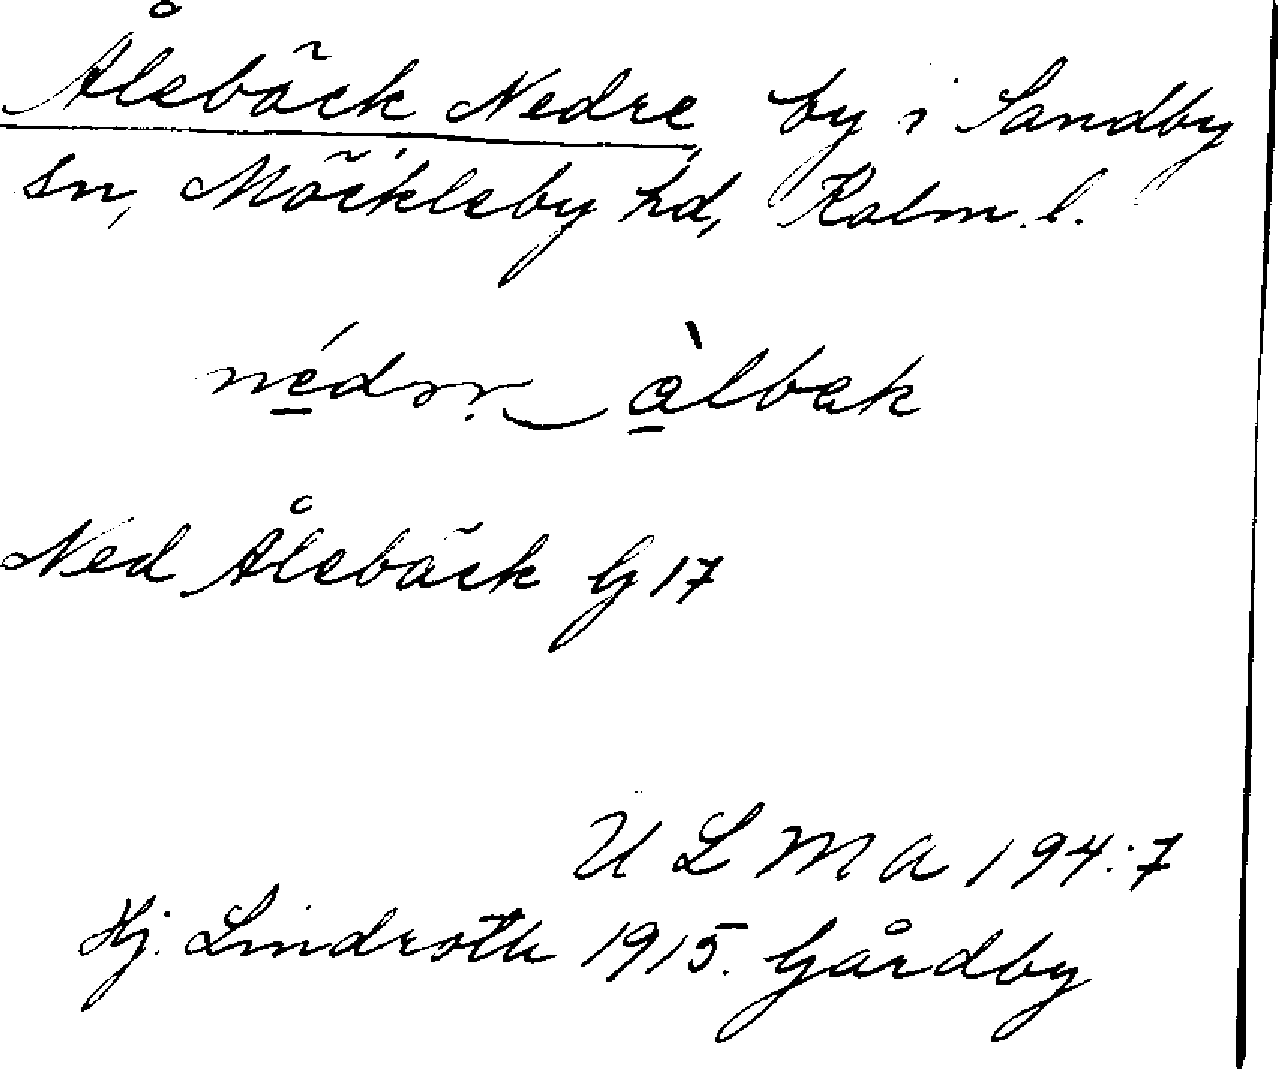 Ålebäck Nedre, by i Sandby
sn, Möckleby hd, Kalm. l.
àlbak
Ned Ålebäck G 17
ULMA 194:7
Hj. Lindroth 1915. Gårdby